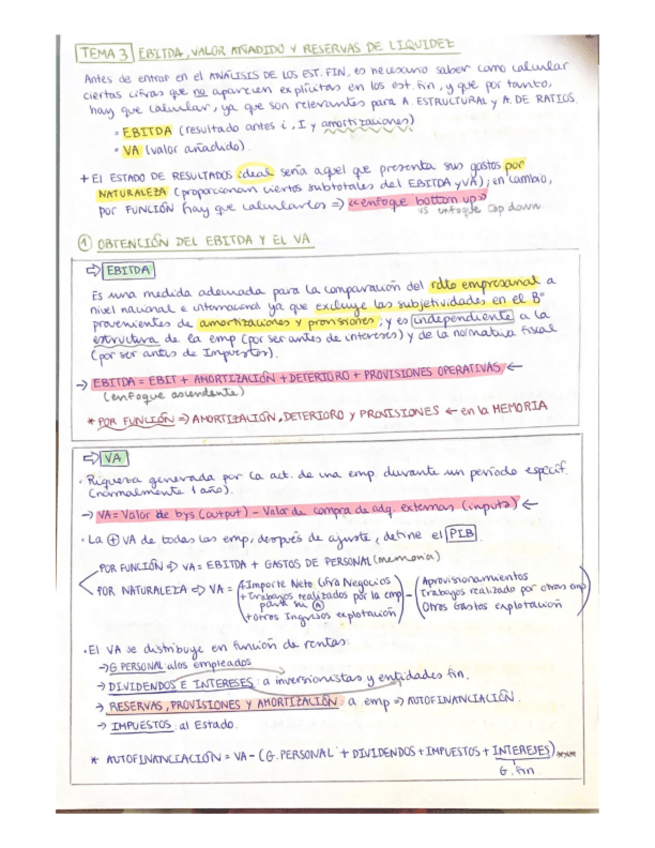 TEMA 3 EBITDA, VALOR AÑADIDO Y RESERVAS DE LIQUIDEZ
Antes de entrar en el ANÁLISIS DE LOS EST. FIN, es necesario saber como calcular
ciertas cifras que no aparecen explícitas en los est. fin, y que por tanto,
hay que calcular, ya que son relevantes para A. ESTRUCTURAL y A. DE RATIOS.
• EBITDA (resultado antes i, I y amortizaciones)
• VA (valor añadido).
+ El ESTADO DE RESULTADOS ideal sería aquel que presenta sus gastos por
NATURALEZA (proporcionan ciertos subtotales del EBITDA y VA); en cambio,
por FUNCIÓN hay que calcularlos => «enfoque bottom up»
vs enfoque top down
① OBTENCIÓN DEL EBITDA Y EL VA
⇨ EBITDA
Es una medida adecuada para la comparación del rdto empresarial a
nivel nacional e internacional ya que excluye las subjetividades en el Bº
provenientes de amortizaciones y provisiones; y es independiente a la
estructura de la emp (por ser antes de intereses) y de la normativa fiscal
(por ser antes de Impuestos).
→ EBITDA = EBIT + AMORTIZACIÓN + DETERIORO + PROVISIONES OPERATIVAS ←
(enfoque ascendente)
* POR FUNCIÓN => AMORTIZACIÓN, DETERIORO y PROVISIONES ← en la MEMORIA
⇨ VA
• Riqueza generada por la act. de una emp. durante un período específ.
(normalmente 1 año).
→ VA = Valor de bys (output) - Valor de compra de adq. externas (inputs) ←
• La ⊕ VA de todas las emp, después de ajuste, define el PIB.
POR FUNCIÓN => VA = EBITDA + GASTOS DE PERSONAL (memoria)
POR NATURALEZA => VA = (Importe Neto Cifra Negocios + Trabajos realizados por la emp para su Ⓐ + Otros Ingresos explotación) - (Aprovisionamientos Trabajos realizado por otras emp Otros Gastos explotación)
• El VA se distribuye en función de rentas:
→ G. PERSONAL: a los empleados
→ DIVIDENDOS E INTERESES: a inversionistas y entidades fin.
→ RESERVAS, PROVISIONES Y AMORTIZACIÓN: a emp => AUTOFINANCIACIÓN.
→ IMPUESTOS: al Estado.
* AUTOFINANCIACIÓN = VA - (G. PERSONAL + DIVIDENDOS + IMPUESTOS + INTERESES) ***
G. fin